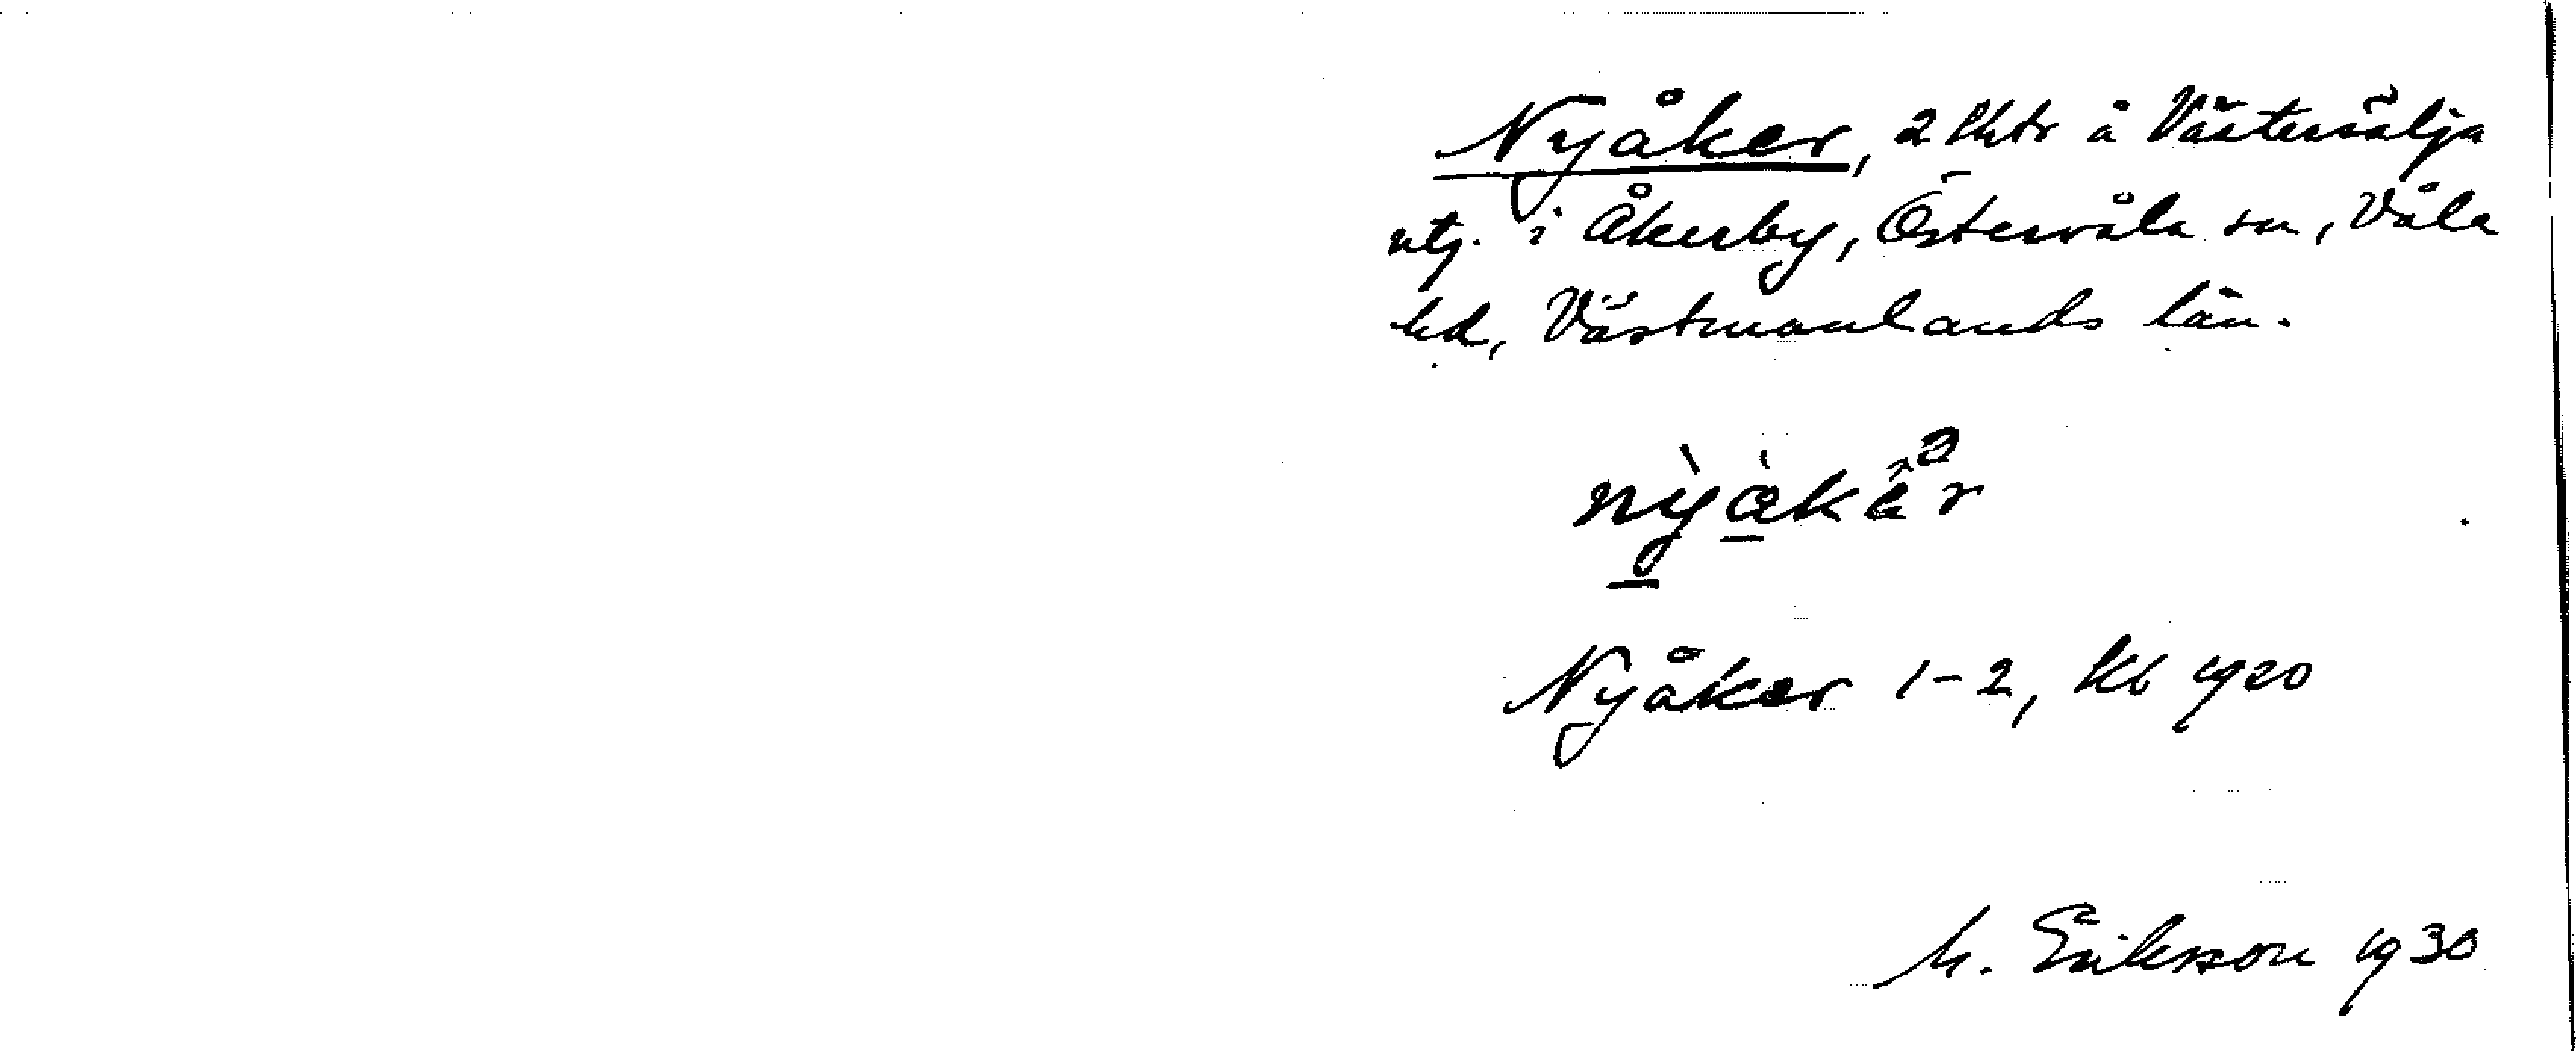 Nyåker, 2 lhtr å Västersälja
utj. i Åkerby, Östervåla sn, Våla
hd, Västmanlands län.
Nyåker 1-2, Kb 1920
M. Eriksson 1930